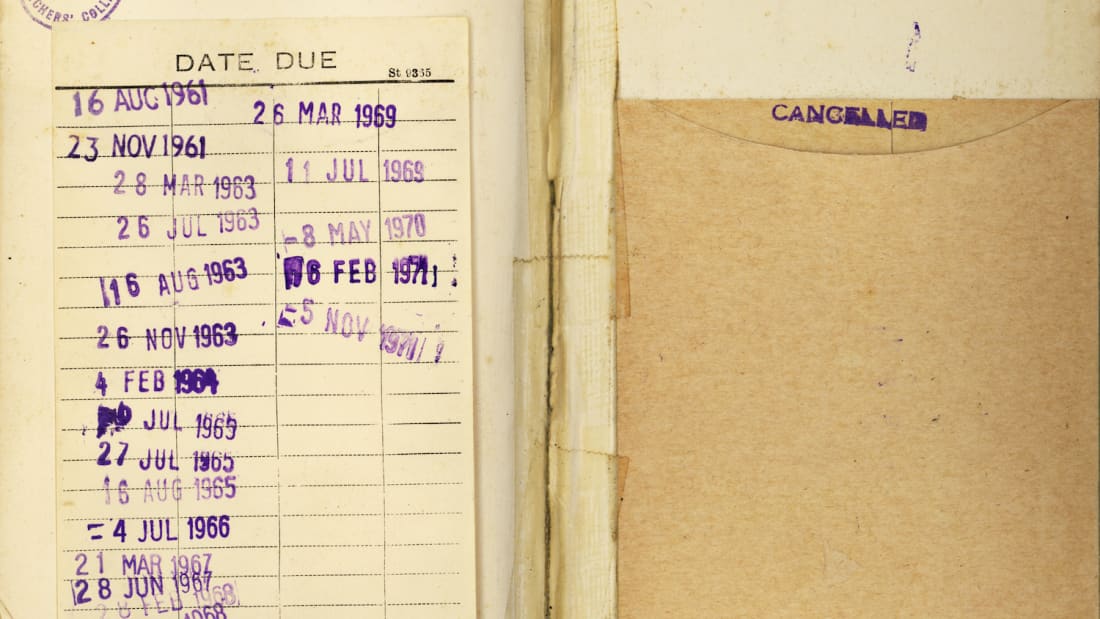 CHERS' COLL
DATE DUE
St 9365
16 AUG 1961
23 NOV 1961
28 MAR 1963
26 JUL 1963
16 AUG 1963
26 NOV 1963
4 FEB 1964
JUL 1965
27 JUL 1965
16 AUG 1965
= 4 JUL 1966
21 MAR 1967
28 JUN 1967
28 FEB 1968
1968
26 MAR 1969
11 JUL 1969
-8 MAY 1970
FEB 1971
5 NOV 1971
CANCELLED